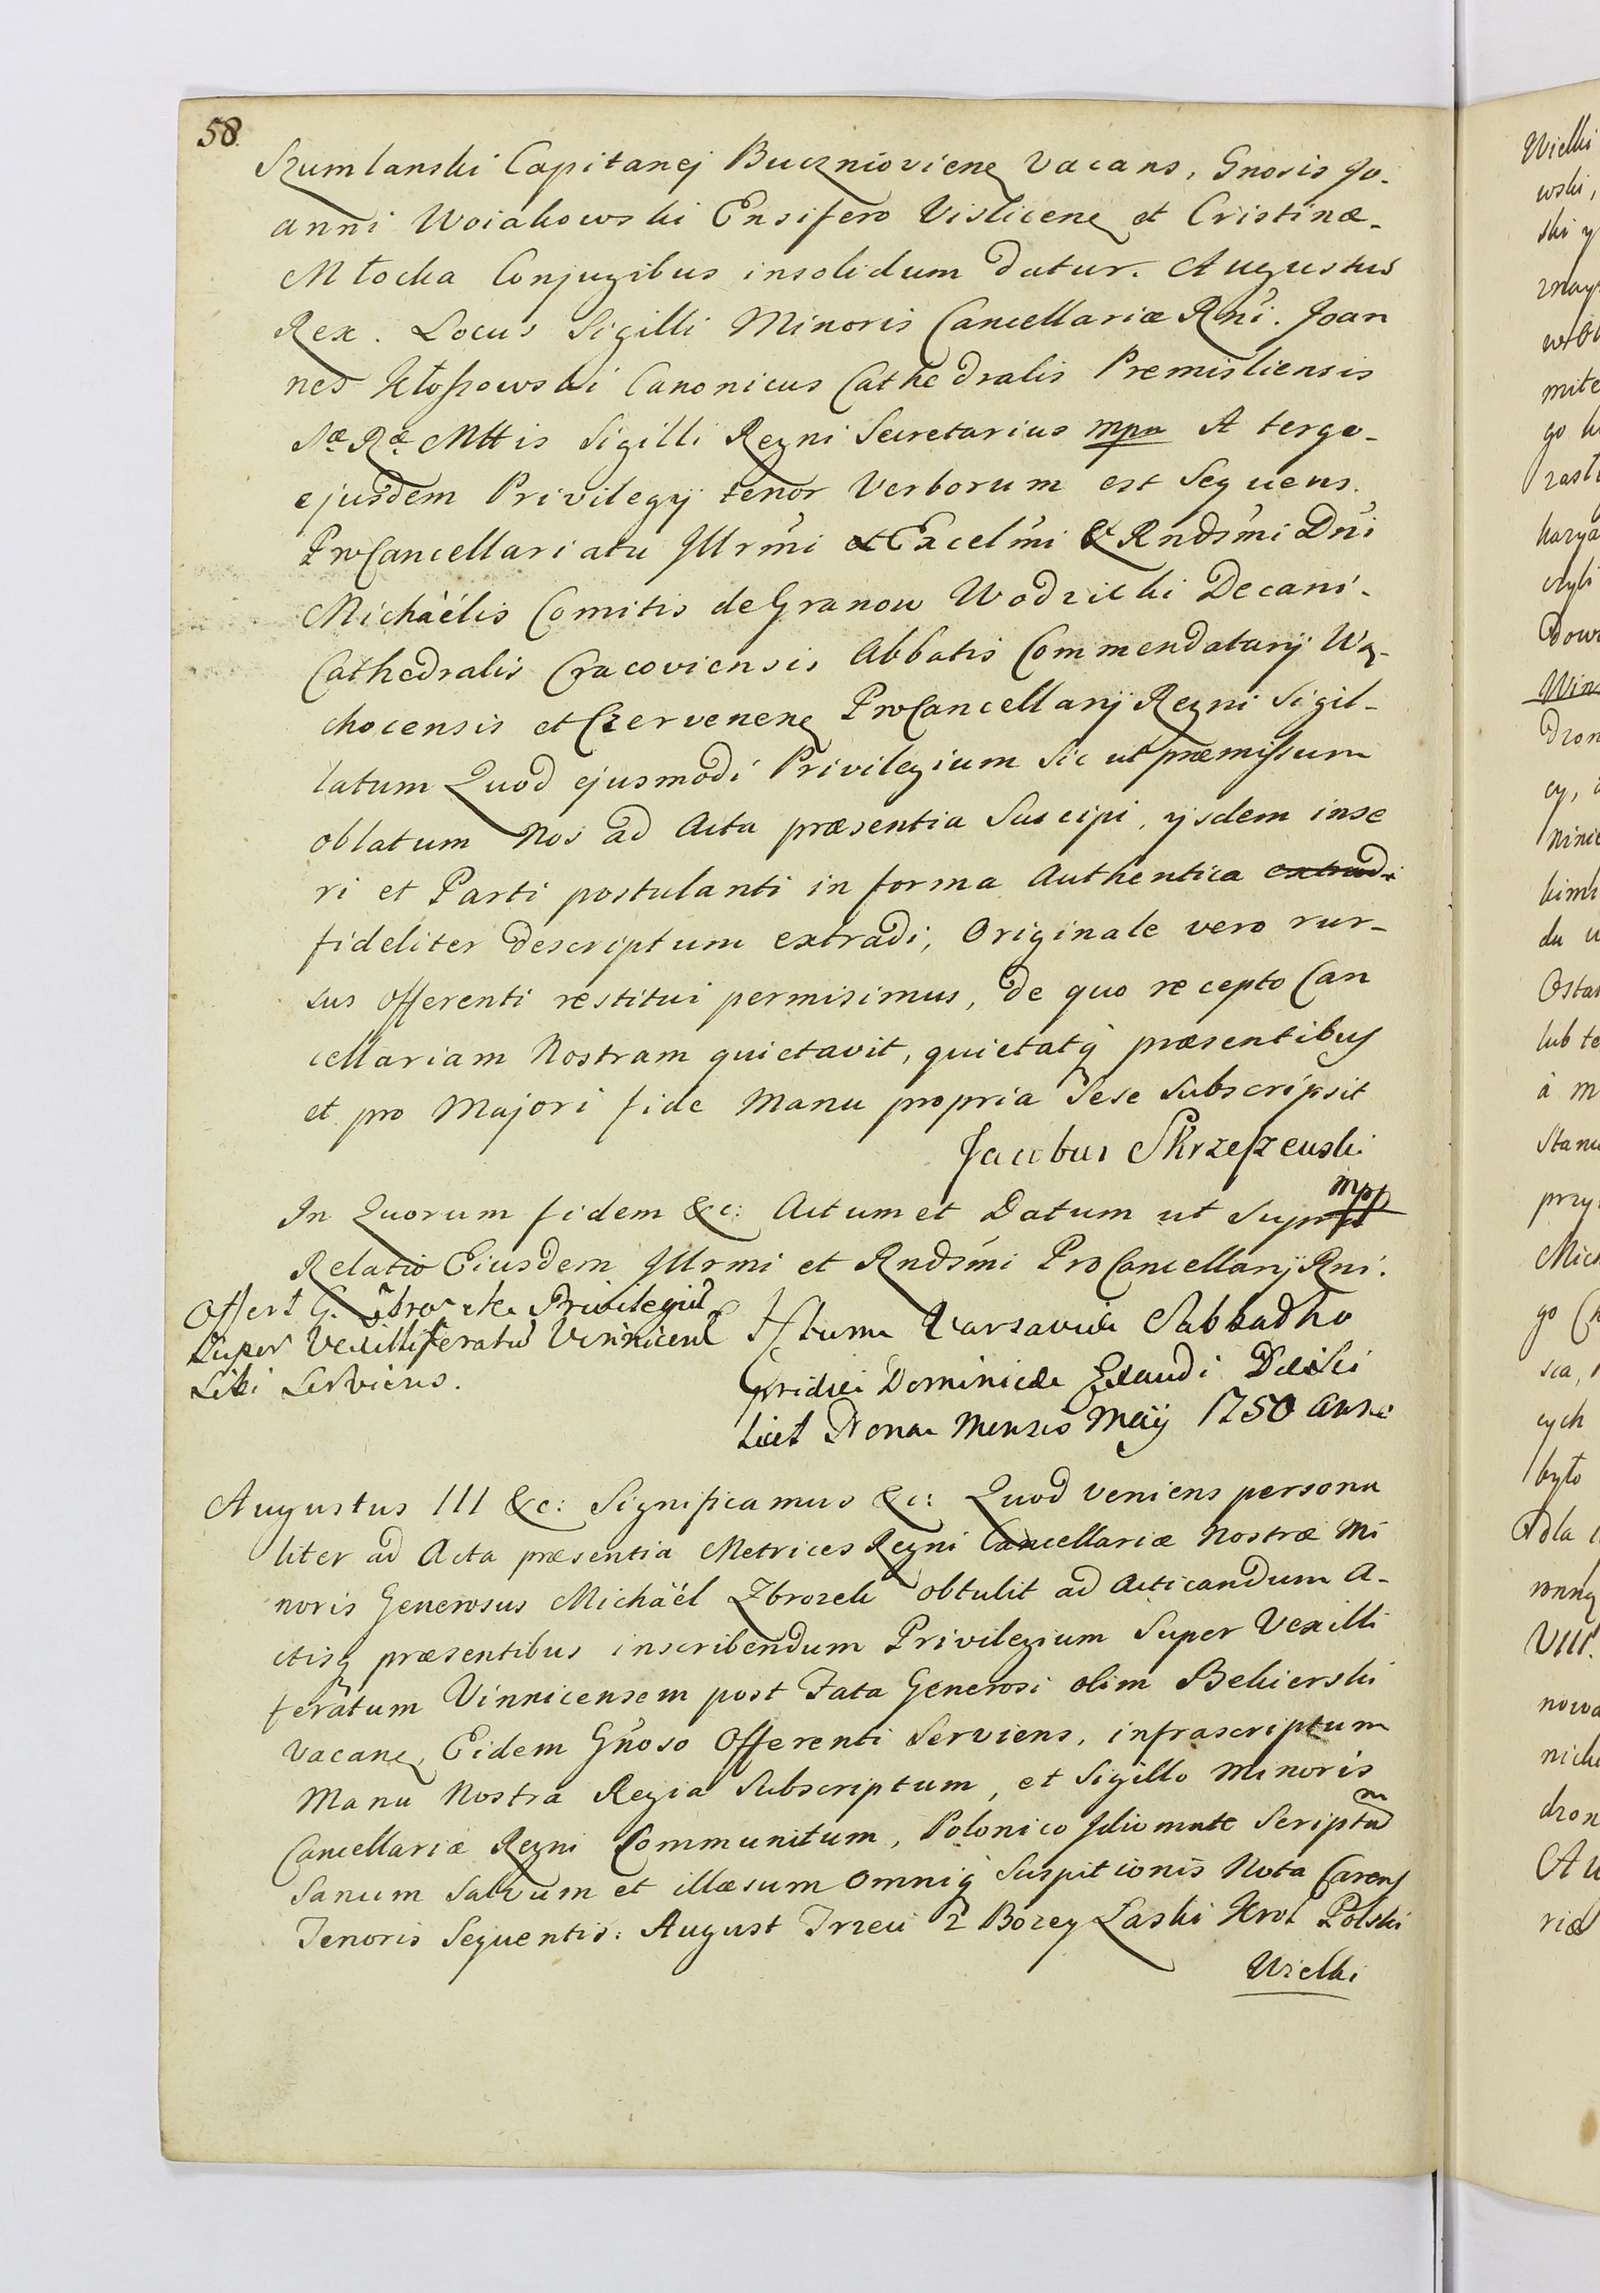 58.
Szumlanski Capitanej Buczniovieneȝ Vacans, Gnosis Jo-
anni Woiakowski Ensifero Visliceneȝ et Cristinæ-
Młocka Conjugibus insolidum datur. Augustus
Rex. Locus Sigilli Minoris Cancellariæ Rni. Joan
nes Kłoſsowski Canonicus Cathedralis Premisliensis
Sæ Ræ Mttis Sigilli Regni Secretarius mpa A tergo-
ejusdem Privilegÿ tenor Verborum est Sequens.
ProCancellariatu Illrmi et Excelmi & Rndsmi Dni
Michäelis Comitis de Granow Wodzicki Decani-
Cathedralis Cracoviensis Abbatis Commendatarÿ Wą-
chocensis et Czerveneneȝ ProCancellarÿ Regni Sigil-
latum Quod ejusmodi Privilegium Sic ut præmiſsum
oblatum Nos ad Acta præsentia Suscipi, ÿsdem inse
ri et Parti postulanti in forma Authentica extradi
fideliter descriptum extradi, Originale vero rur-
sus offerenti restitui permisimus, de quo recepto Can
cellariam Nostram quietavit, quietatq præsentibus
et pro Majori fide Manu propria Sese Subscripsit
Jacobus Skrzeſzewski
mpp
In Quorum fidem &c: Actum et Datum ut Supra
Relatio Ejusdem Illrmi et Rndsmi ProCancellarÿ Rni.
Offert G. Zbrozek Privilegiũ
Super Vexilliferatũ Vinnicens
Sibi Serviens.
Actum Varsaviæ Sabbatho
pridie Dominicæ Exaudi Die Sci
licet Nona Mensis Maÿ 1750 Anno
Augustus III &c: Significamus &c: Quod veniens persona
liter ad Acta præsentia Metrices Regni Cancellariæ Nostræ Mi
noris Generosus Michäel Zbrozek obtulit ad Acticandum A-
ctisq præsentibus inscribendum Privilegium Super Vexilli
feratum Vinnicensem post Fata Generosi olim Bekierski
Vacaneȝ, Eidem Gnoso Offerenti Serviens, infrascriptum
Manu Nostra Regia Subscriptum, et Sigillo Minoris
Cancellariæ Regni Communitum, Polonico Idiomate Scriptum
Sanum Salvum et illæsum omniq Suspitionis Nota Carens
Tenoris Sequentis: August Trzeci z Bozey Łaski Krol Polski
Wielki